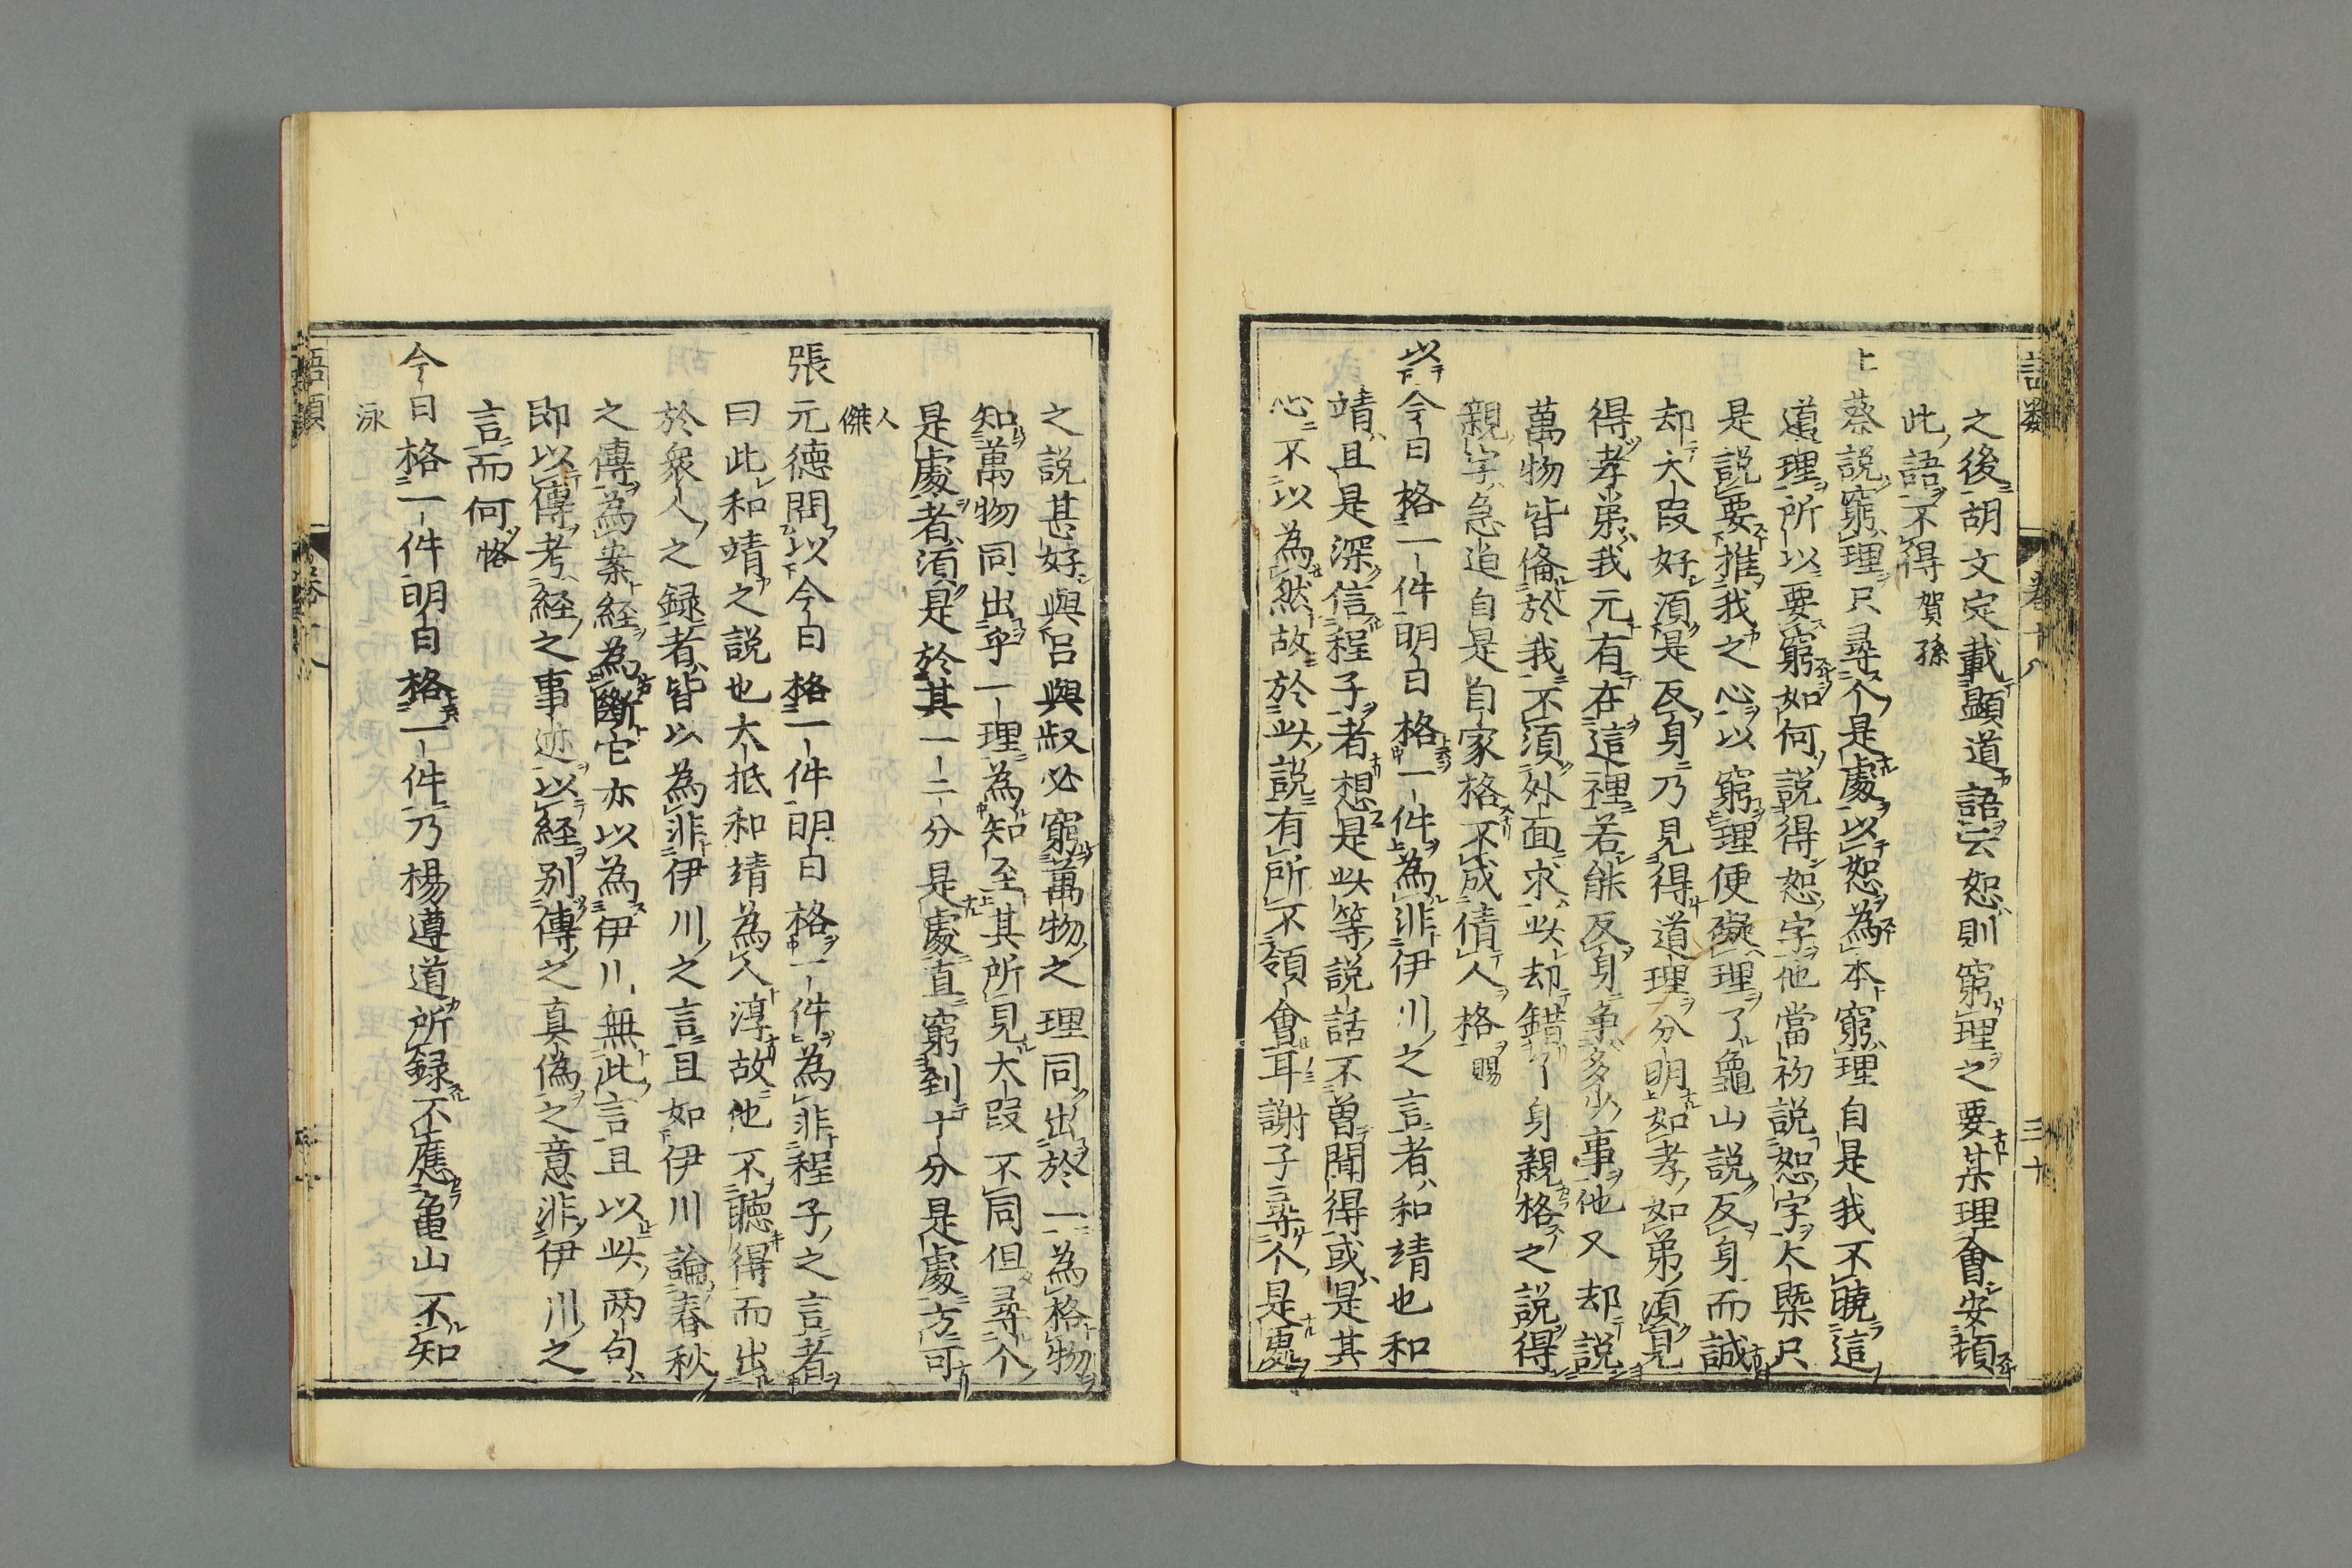 語類 卷十八 三十
之後胡文定載顯道語云恕則窮理之要某理會安頓
此語不得賀孫
上蔡說窮理只尋个是處以恕為本窮理自是我不曉這
道理所以要窮如何說得恕字他當初說恕字大槩只
是說要推我之心以窮理便礙理了龜山說反身而誠
却大段好須是反身乃見得道理分明如孝如弟須見
得孝弟我元有在這裡若能反身爭多少事他又却說
萬物皆俻於我不須外面求此却錯了身親格之說得
親字急迫自是自家格不成倩人格賜
以今日格一件明日格一件為非伊川之言者和靖也和
靖且是深信程子者想是此等說話不曾聞得或是其
心不以為然故於此說有所不領會耳謝子尋个是處
之說甚好與呂與叔必窮萬物之理同出於一為格物
知萬物同出乎一理為知至其所見大段不同但尋个
是處者須是於其一二分是處直窮到十分是處方可
人傑
張元德問以今日格一件明日格一件為非程子之言者
曰此和靖之說也大抵和靖為人淳故他不聽得而出
於衆人之録者皆以為非伊川之言且如伊川論春秋
之傳為案經為斷它亦以為伊川無此言且以此两句
即以傳考経之事迹以経别傳之真偽之意非伊川之
言而何㤩
今日格一件明日格一件乃楊遵道所録不應龜山不知
泳
語類 卷十八 三十